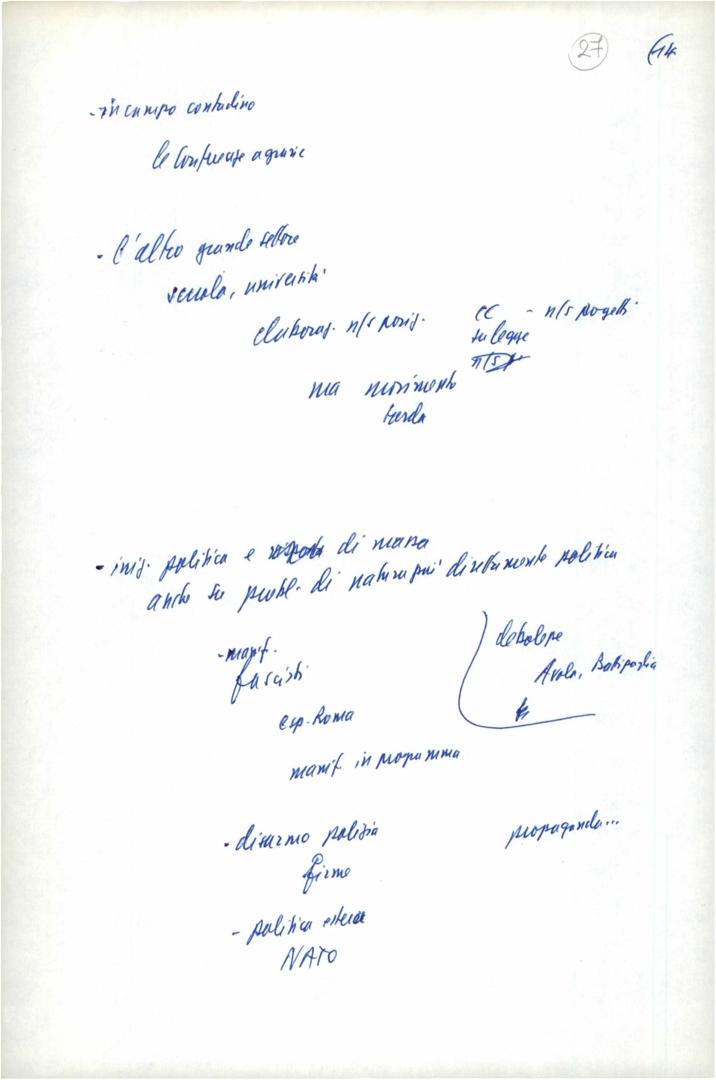 27 14
- in campo contadino
le Conferenze agrarie
- l'altro grande settore
scuola, università
elaboraz. n/s posiz.
CC - n/s progetti
su legge
ma movimento
tarda
- iniz. politica e di massa
anche su probl. di natura più direttamente politica
- manif.
fascisti
esp. Roma
manif. in programma
debolezze
Avola, Battipaglia
- disarmo polizia
firme
propaganda...
- politica estera
NATO